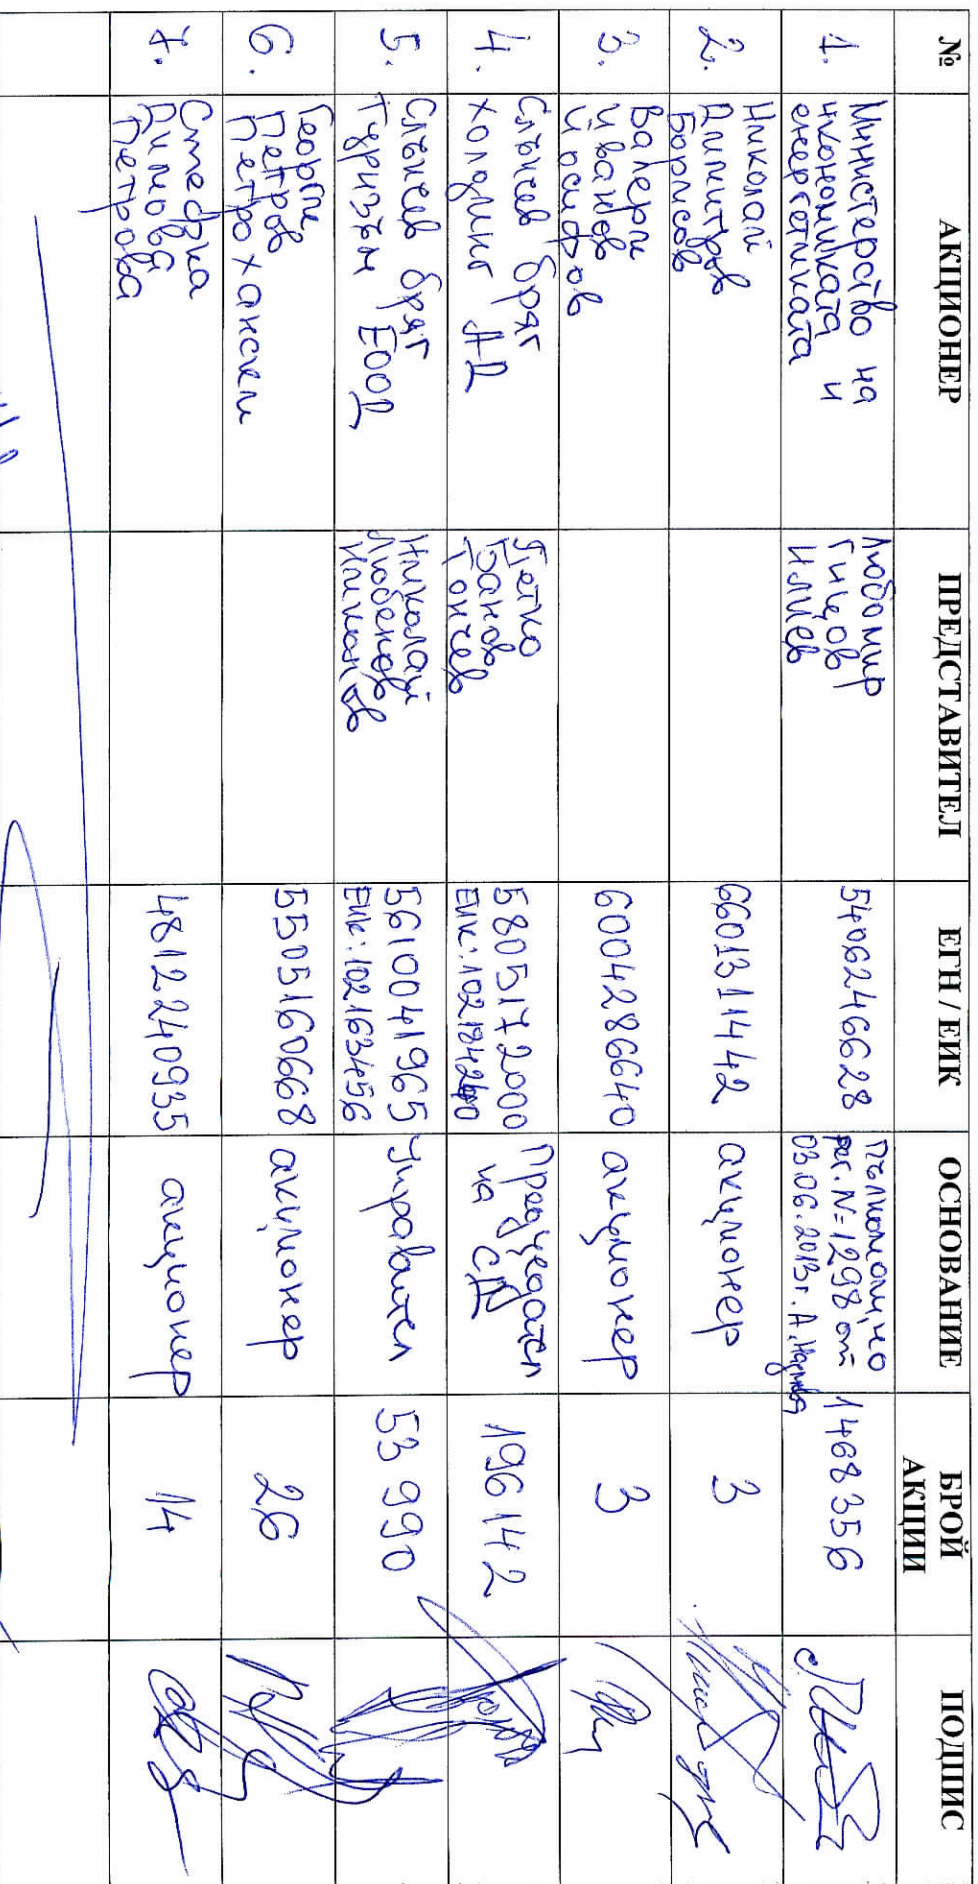 № АКЦИОНЕР ПРЕДСТАВИТЕЛ ЕГН / ЕИК ОСНОВАНИЕ БРОЙ АКЦИИ ПОДПИС
1.
Министерство на
икономиката и
енергетиката
Любомир
Гинцов
Илиев
5406246628
Пълномощно
рег. N=1298 от
03.06.2013г. А.
1468356
2.
Николай
Димитров
Борисов
6601311442
акционер
3
3.
Валери
Иванов
Йосифов
6004286640
акционер
3
4.
Слънчев бряг
холдинг АД
Петко
Банов
Тончев
5805172000
ЕИК:
Председател
на СД
196142
5.
Слънчев бряг
Туризъм ЕООД
Николай
Любенов
Николов
5610041965
ЕИК: 102163456
Управител
53 990
6.
Георги
Петров
Петрохански
5505160668
акционер
26
7.
Стефка
Димова
Петрова
4812240935
акционер
14